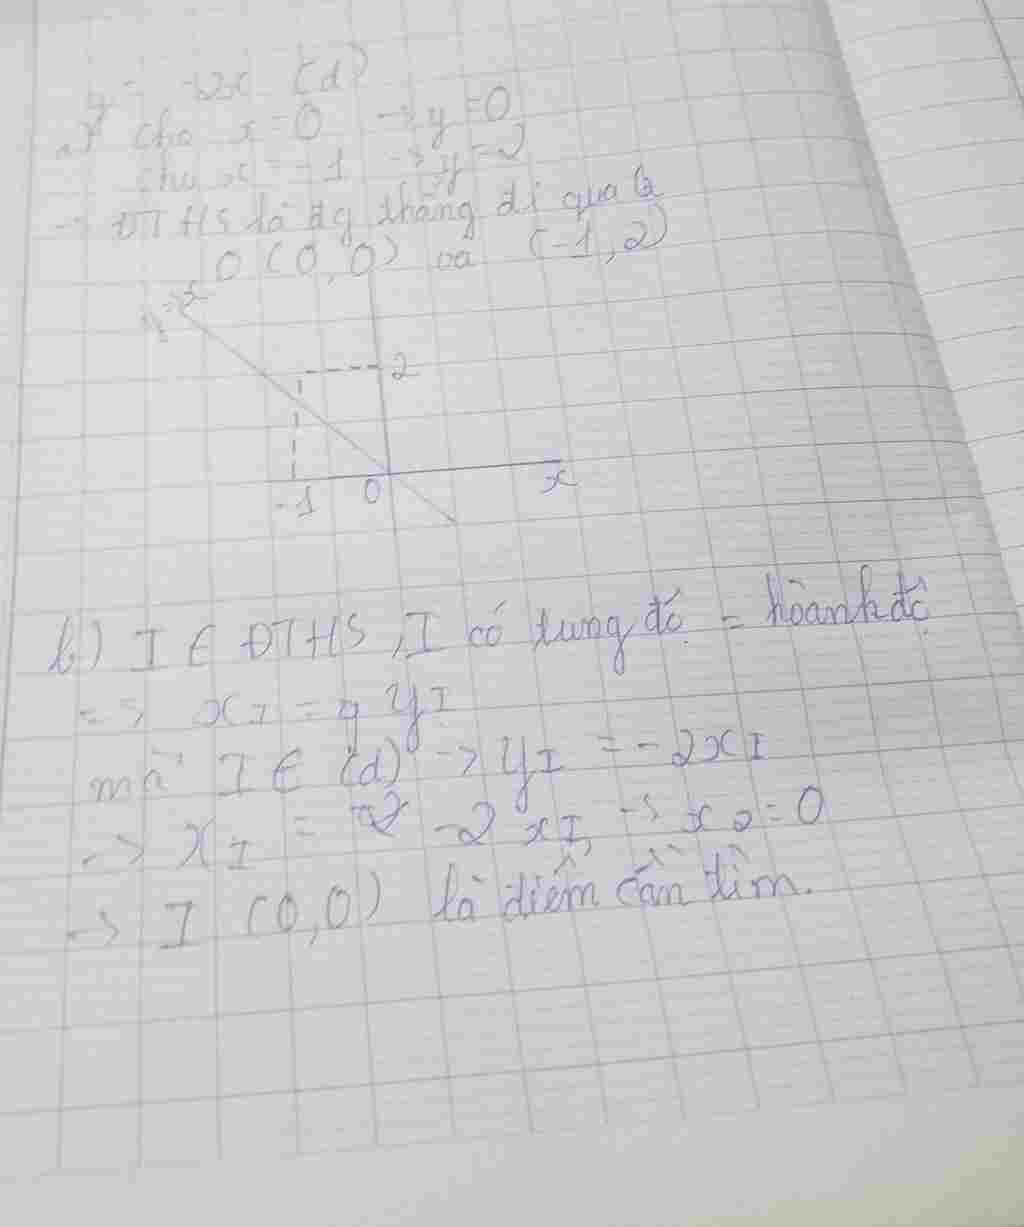 y = -2x (d)
a) cho x = 0 → y = 0
cho x = -1 → y = 2
→ ĐTHS là đg thẳng đi qua
O (0,0) và (-1,2)
2
-1 0 x
b) I ∈ ĐTHS, I có tung độ = hoành độ
=> x_I = y_I
mà I ∈ (d) → y_I = -2x_I
-> x_I = -2 x_I → x_0 = 0
-> I (0,0) là điểm cần tìm.